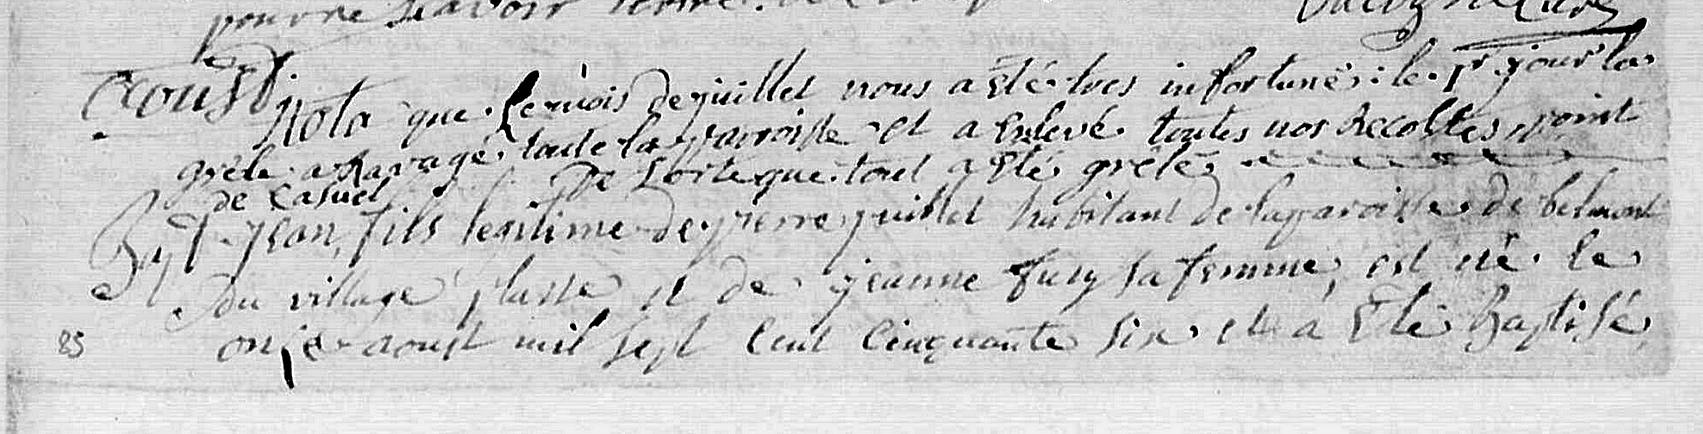 pour ne sçavoir
Aoust Nota que le mois de juillet nous a eté tres infortuné: le 1r jour la
grele a Ravagé toute la parroisse et a enlevé toutes nos Recoltes, point
de Casuel De sorte que tout a eté grelé
Bapt Jean, fils legitime de pierre juillet habitant de la paroisse de belmont
Du village et de jeanne fury sa femme, est né le
onze aoust mil sept cent cinquante six et a eté Baptisé
85